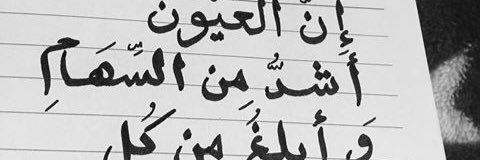 إِنَّ العُيُونَ
أَشَدُّ مِن السِّهَامِ
وَ أَبلَغُ مِن كُل